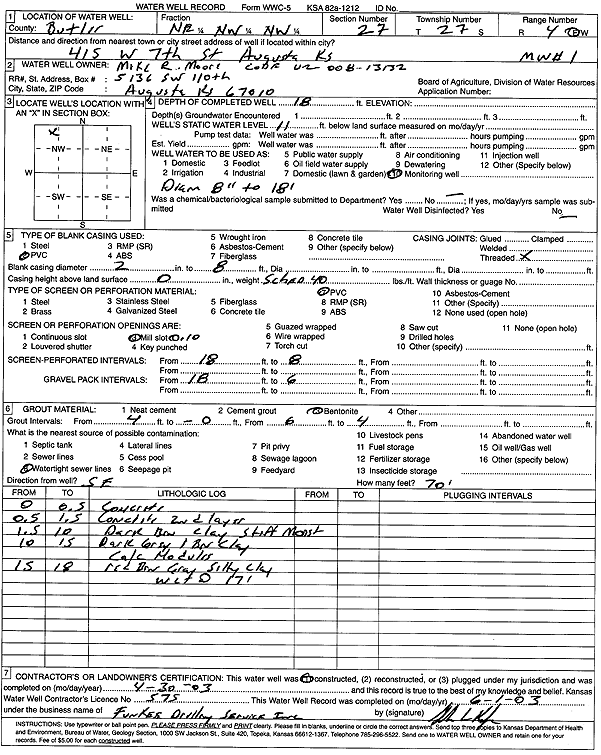 WATER WELL RECORD Form WWC-5 KSA 82a-1212 ID No.
1 LOCATION OF WATER WELL: Fraction Section Number Township Number Range Number
County: Butler NE ¼ NW ¼ NW ¼ 27 T 27 S R 4 E/W
Distance and direction from nearest town or city street address of well if located within city?
415 W 7th St Augusta Ks MW#1
2 WATER WELL OWNER: Mike R. Moore Code U2 008-13132
RR#, St. Address, Box # : 5136 SW 110th Board of Agriculture, Division of Water Resources
City, State, ZIP Code : Augusta Ks 67010 Application Number:
3 LOCATE WELL'S LOCATION WITH AN "X" IN SECTION BOX:
N
X
NW NE
W E
SW SE
S
4 DEPTH OF COMPLETED WELL 18 ft. ELEVATION:
Depth(s) Groundwater Encountered 1 ft. 2 ft. 3 ft.
WELL'S STATIC WATER LEVEL 11 ft. below land surface measured on mo/day/yr
Pump test data: Well water was ft. after hours pumping gpm
Est. Yield gpm: Well water was ft. after hours pumping gpm
WELL WATER TO BE USED AS: 5 Public water supply 8 Air conditioning 11 Injection well
1 Domestic 3 Feedlot 6 Oil field water supply 9 Dewatering 12 Other (Specify below)
2 Irrigation 4 Industrial 7 Domestic (lawn & garden) 10 Monitoring well
Diam 8" to 18'
Was a chemical/bacteriological sample submitted to Department? Yes No ; If yes, mo/day/yrs sample was submitted
Water Well Disinfected? Yes No
5 TYPE OF BLANK CASING USED: 5 Wrought iron 8 Concrete tile CASING JOINTS: Glued Clamped
1 Steel 3 RMP (SR) 6 Asbestos-Cement 9 Other (specify below) Welded
2 PVC 4 ABS 7 Fiberglass Threaded X
Blank casing diameter 2 in. to 8 ft., Dia in. to ft., Dia in. to ft.
Casing height above land surface 0 in., weight Sched 40 lbs./ft. Wall thickness or guage No.
TYPE OF SCREEN OR PERFORATION MATERIAL: 7 PVC 10 Asbestos-Cement
1 Steel 3 Stainless Steel 5 Fiberglass 8 RMP (SR) 11 Other (Specify)
2 Brass 4 Galvanized Steel 6 Concrete tile 9 ABS 12 None used (open hole)
SCREEN OR PERFORATION OPENINGS ARE: 5 Guazed wrapped 8 Saw cut 11 None (open hole)
1 Continuous slot 3 Mill slot 0.10 6 Wire wrapped 9 Drilled holes
2 Louvered shutter 4 Key punched 7 Torch cut 10 Other (specify) ft.
SCREEN-PERFORATED INTERVALS: From 18 ft. to 8 ft., From ft. to ft.
From ft. to ft., From ft. to ft.
GRAVEL PACK INTERVALS: From 18 ft. to 6 ft., From ft. to ft.
From ft. to ft., From ft. to ft.
6 GROUT MATERIAL: 1 Neat cement 2 Cement grout 3 Bentonite 4 Other
Grout Intervals: From 4 ft. to 0 ft., From 6 ft. to 4 ft., From ft. to ft.
What is the nearest source of possible contamination: 10 Livestock pens 14 Abandoned water well
1 Septic tank 4 Lateral lines 7 Pit privy 11 Fuel storage 15 Oil well/Gas well
2 Sewer lines 5 Cess pool 8 Sewage lagoon 12 Fertilizer storage 16 Other (specify below)
3 Watertight sewer lines 6 Seepage pit 9 Feedyard 13 Insecticide storage
Direction from well? SE How many feet? 70'
FROM TO LITHOLOGIC LOG FROM TO PLUGGING INTERVALS
0 0.5 Concrete
0.5 1.5 Concrete 2nd layer
1.5 10 Dark Brn Clay Stiff Moist
10 15 Dark Gray / Brn Clay
Calc Nodules
15 18 Brn Gray Silty Clay
Wet @ 17'
7 CONTRACTOR'S OR LANDOWNER'S CERTIFICATION: This water well was (1) constructed, (2) reconstructed, or (3) plugged under my jurisdiction and was
completed on (mo/day/year) 4-30-03 and this record is true to the best of my knowledge and belief. Kansas
Water Well Contractor's Licence No 575 This Water Well Record was completed on (mo/day/yr) 6-1-03
under the business name of Funkes Drilling Service Inc by (signature)
INSTRUCTIONS: Use typewriter or ball point pen. PLEASE PRESS FIRMLY and PRINT clearly. Please fill in blanks, underline or circle the correct answers. Send top three copies to Kansas Department of Health
and Environment, Bureau of Water, Geology Section, 1000 SW Jackson St., Suite 420, Topeka, Kansas 66612-1367. Telephone 785-296-5522. Send one to WATER WELL OWNER and retain one for your
records. Fee of $5.00 for each constructed well.